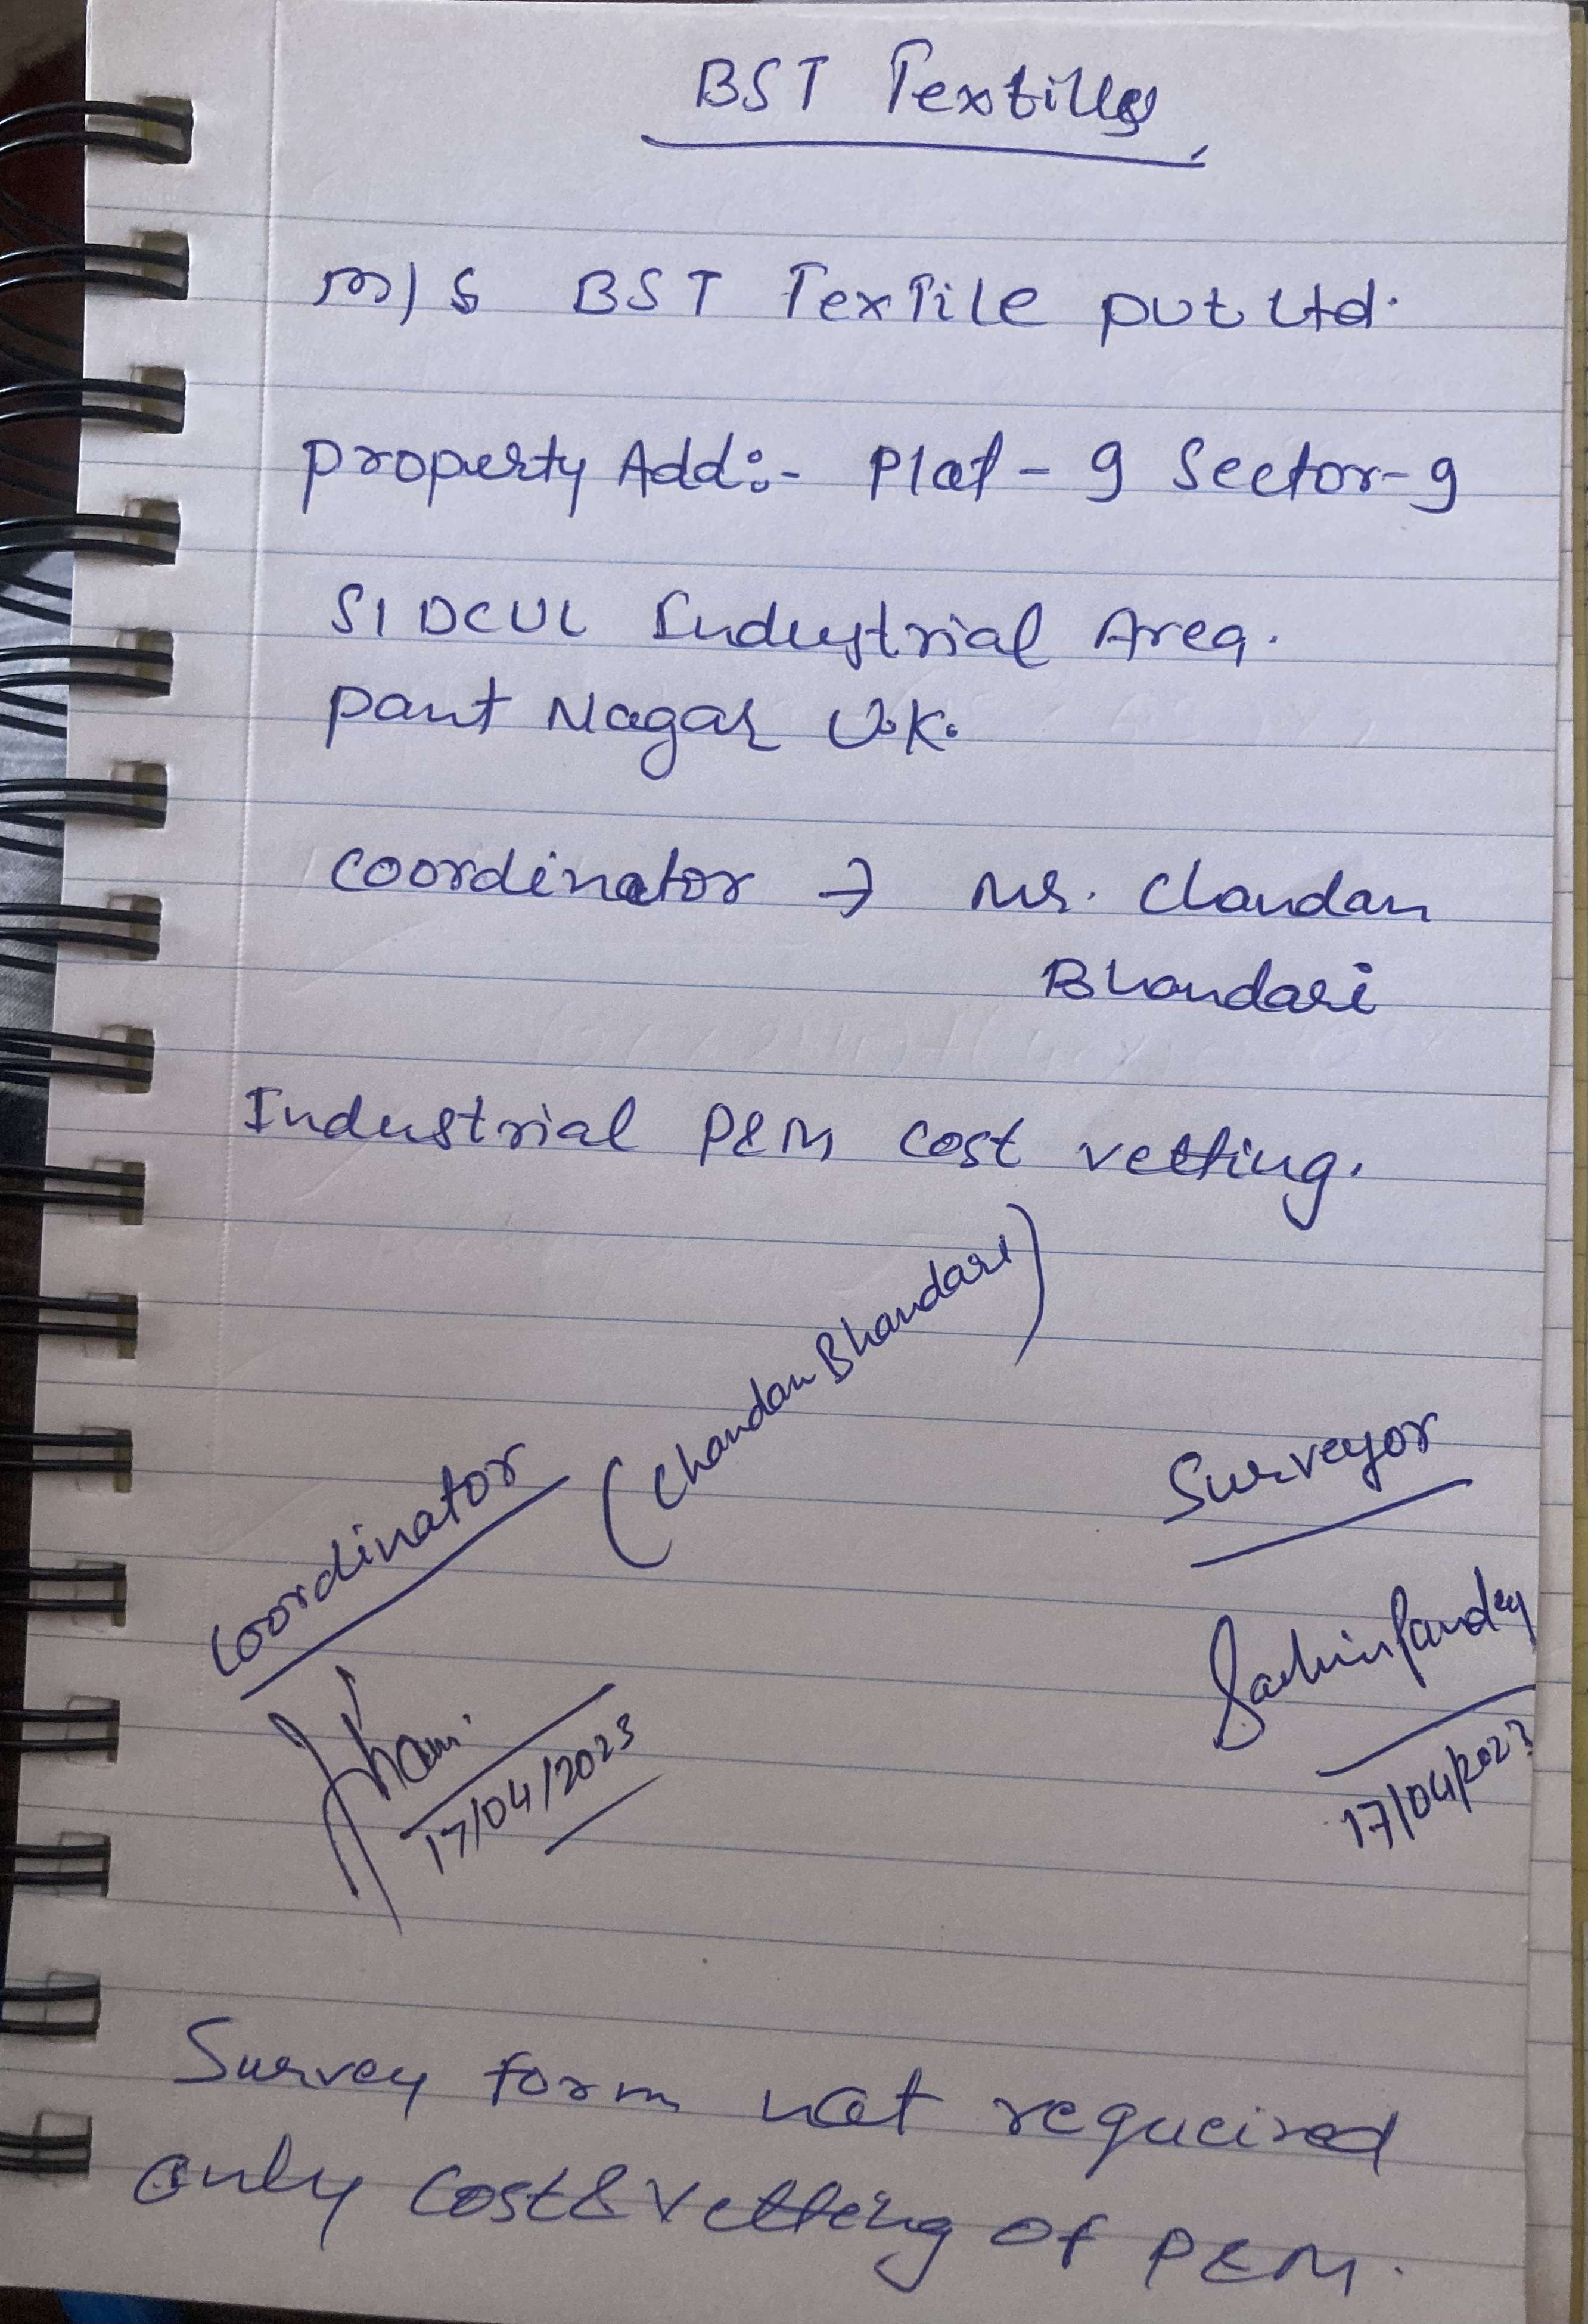 BST Textiles
M/S BST Textile Pvt Ltd.
Property Add:- Plot - 9 Sector-9
SIDCUL Industrial Area.
Pant Nagar U.K.
Coordinator → Mr. Chandan
Bhandari
Industrial P&M cost vetting.
(Chandan Bhandari)
Coordinator
17/04/2023
Surveyor
Sachin Pandey
17/04/2023
Survey form not requeired
only Cost & Vetting of P&M.